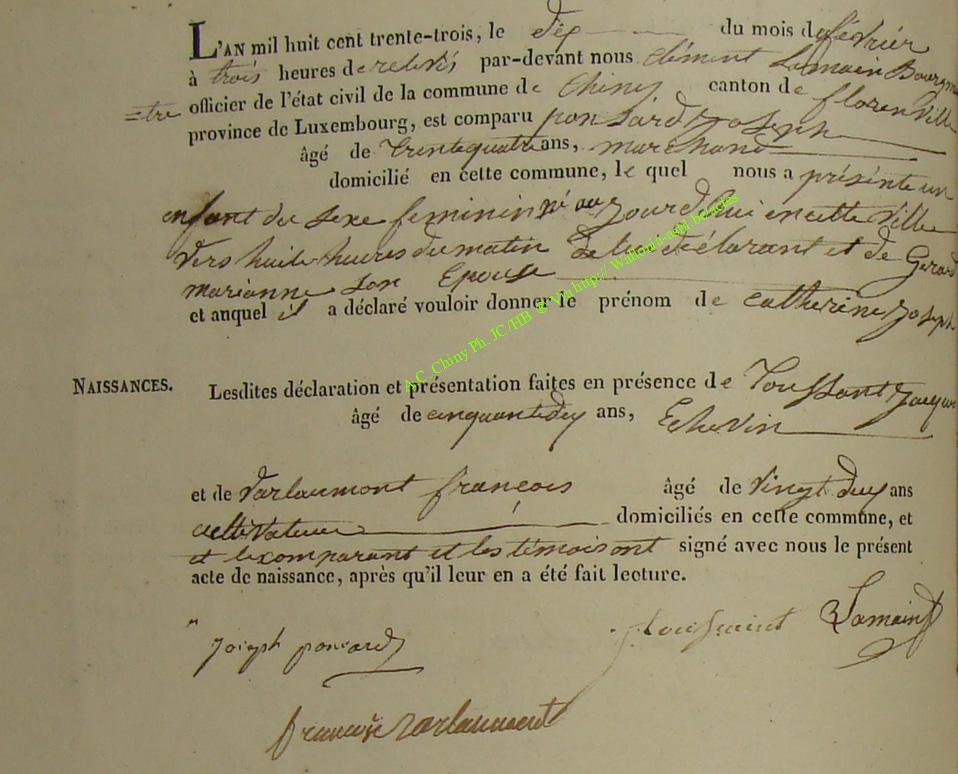 L'AN mil huit cent trente-trois, le dix du mois de février
à trois heures de relevés par-devant nous clément Lamain Bourgme
=tre officier de l'état civil de la commune de Chiny canton de florenville
province de Luxembourg, est comparu ponsard Joseph
âgé de trentequatre ans, marchand
domicilié en cette commune, le quel nous a présénte un
enfant du sexe feminin né aujourd'hui en cette ville
vers huit heures du matin de lui déclarant et de Gerard
marianne son Epouse
et auquel il a déclaré vouloir donner le prénom de catherine joseph.
NAISSANCES. Lesdites déclaration et présentation faites en présence de Toussaint jacque
âgé de cinquantedeux ans, Echevin
et de Varlaumont françois âgé de vingt deux ans
cultivateur domiciliés en cette commune, et
et le comparant et les témoisont signé avec nous le présent
acte de naissance, après qu'il leur en a été fait lecture.
Joseph ponsard J. toussaint Lamain
françois varlaumont
A.C. Chiny Ph. JC/HB @ Via http:// Wallonia-asbl.be/ages